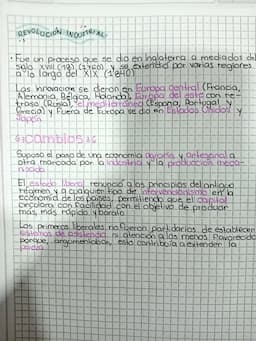 REVOLUCIÓN INDUSTRIAL
· Fue un proceso que se dio en Inglaterra a mediados del
siglo XVIII (18) (1760) y se extendió por varias regiones
a lo largo del XIX (1840)
Las innovacion se dieron en Europa central (Francia,
Alemania, Bélgica, Holanda), Europa del este con re-
traso (Rusia), el mediterráneo (España, Portugal y
Grecia) y Fuera de Europa se dio en Estados Unidos y
Japón
Cambios
Supuso el paso de una economía agraria y artesanal a
otra marcada por la industria y la producción meca-
nizada
El estado liberal renunció a los principios del antiguo
régimen y a cualquier tipo de intervencionismo en la
economía de los países, permitiendo que el capital
circulara con facilidad con el objetivo de producir
más, más rápido y barato
Los primeros liberales no fueron partidarios de establecer
sistemas de asistencia ni atención a los menos Favorecidos
porque, argumentaban, esto contribuía a extender la
pobreza